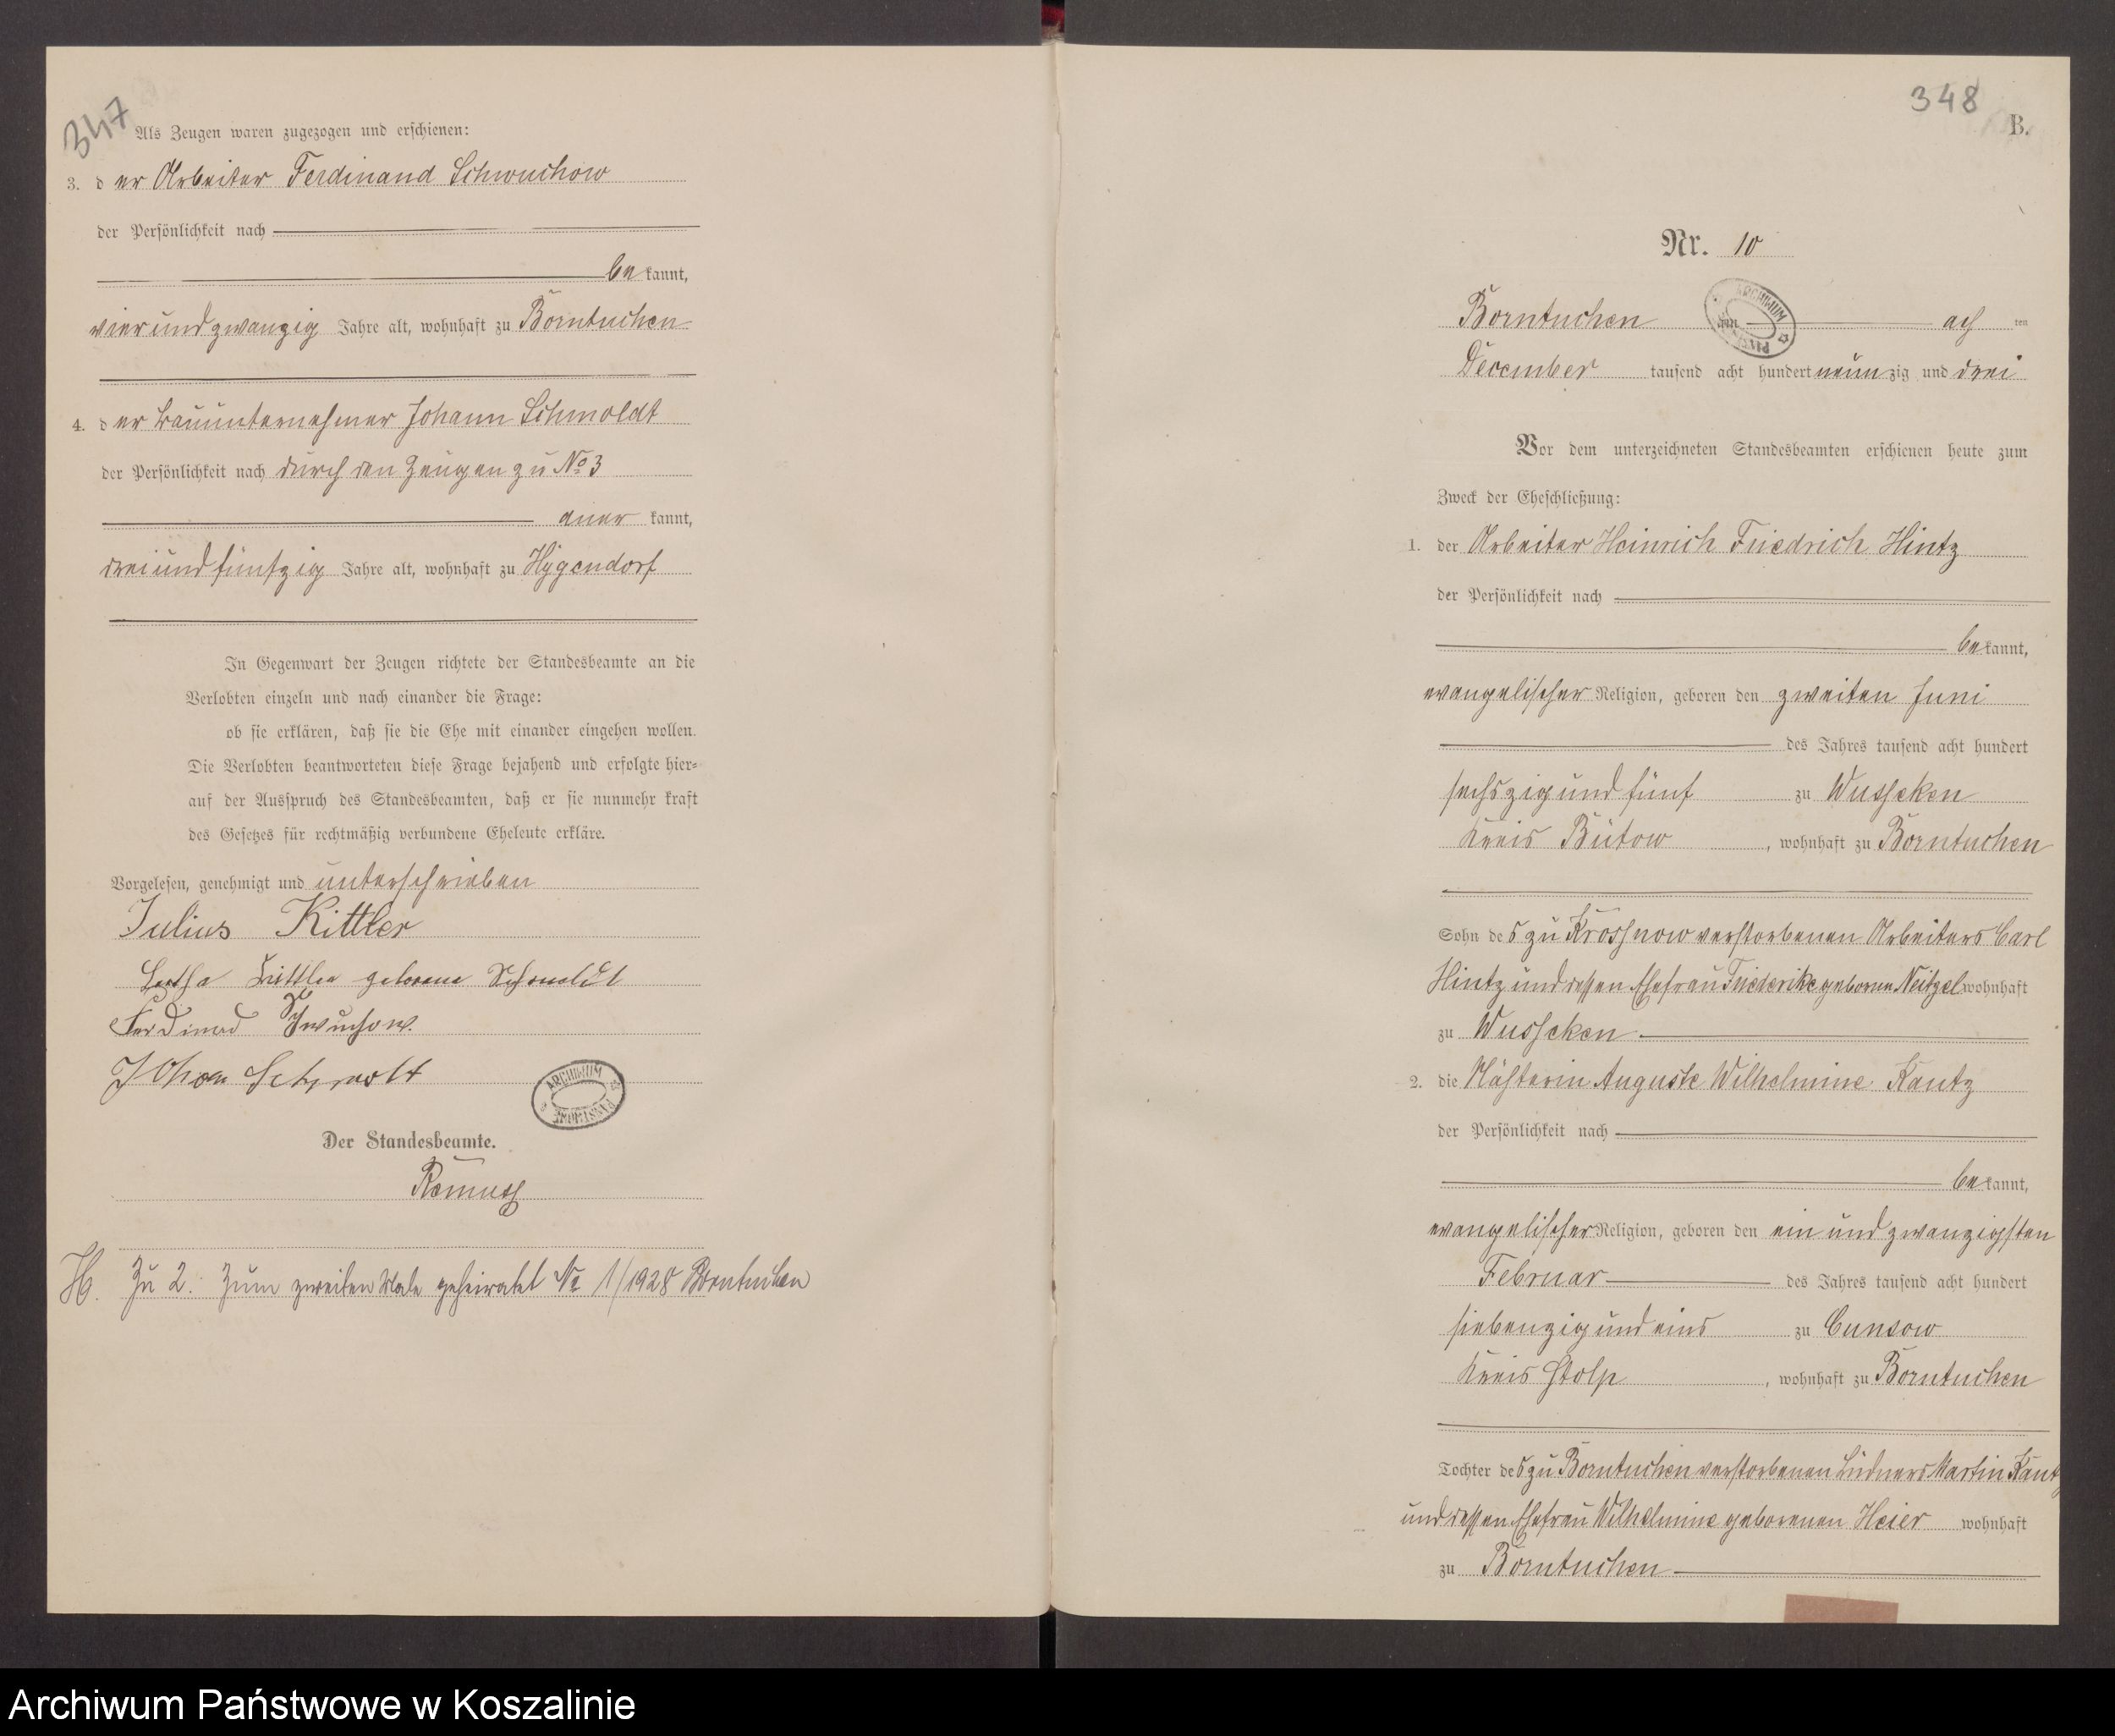 347
Als Zeugen waren zugezogen und erschienen:
3. der Arbeiter Ferdinand Schwuchow
der Persönlichkeit nach
bekannt,
vierundzwanzig Jahre alt, wohnhaft zu Borntuchen
4. der Bauunternehmer Johann Schmoldt
der Persönlichkeit nach durch den Zeugen zu No 3
anerkannt,
dreiundfünfzig Jahre alt, wohnhaft zu Hygendorf
In Gegenwart der Zeugen richtete der Standesbeamte an die
Verlobten einzeln und nach einander die Frage:
ob sie erklären, daß sie die Ehe mit einander eingehen wollen.
Die Verlobten beantworteten diese Frage bejahend und erfolgte hier-
auf der Ausspruch des Standesbeamten, daß er sie nunmehr kraft
des Gesetzes für rechtmäßig verbundene Eheleute erkläre.
Vorgelesen, genehmigt und unterschrieben
Julius Kittler
Kittler geborene
Ferdinad Schwuchow.
ARCHIWUM PAŃSTWOWE
Der Standesbeamte.
Remus
H. Zu 2. Zum zweiten Male geheiratet Nr 1/1928 Borntuchen
348
B.
Nr. 10
Borntuchen am ach ten
ARCHIWUM PAŃSTWOWE
December tausend acht hundert neunzig und drei
Vor dem unterzeichneten Standesbeamten erschienen heute zum
Zweck der Eheschließung:
1. der Arbeiter Heinrich Friedrich Hintz
der Persönlichkeit nach
bekannt,
evangelischer Religion, geboren den zweiten Juni
des Jahres tausend acht hundert
sechszig und fünf zu Wusseken
Kreis Bütow, wohnhaft zu Borntuchen
Sohn des zu Krossnow verstorbenen Arbeiters Carl
Hintz und dessen Ehefrau Friederike geborne Neitzel wohnhaft
zu Wusseken
2. die Nähterin Auguste Wilhelmine Kautz
der Persönlichkeit nach
bekannt,
evangelischer Religion, geboren den ein und zwanzigsten
Februar des Jahres tausend acht hundert
siebenzig und eins zu Cunsow
Kreis Stolp, wohnhaft zu Borntuchen
Tochter des zu Borntuchen verstorbenen Büdners Martin Kautz
und dessen Ehefrau Wilhelmine geborenen Heier wohnhaft
zu Borntuchen
Archiwum Państwowe w Koszalinie